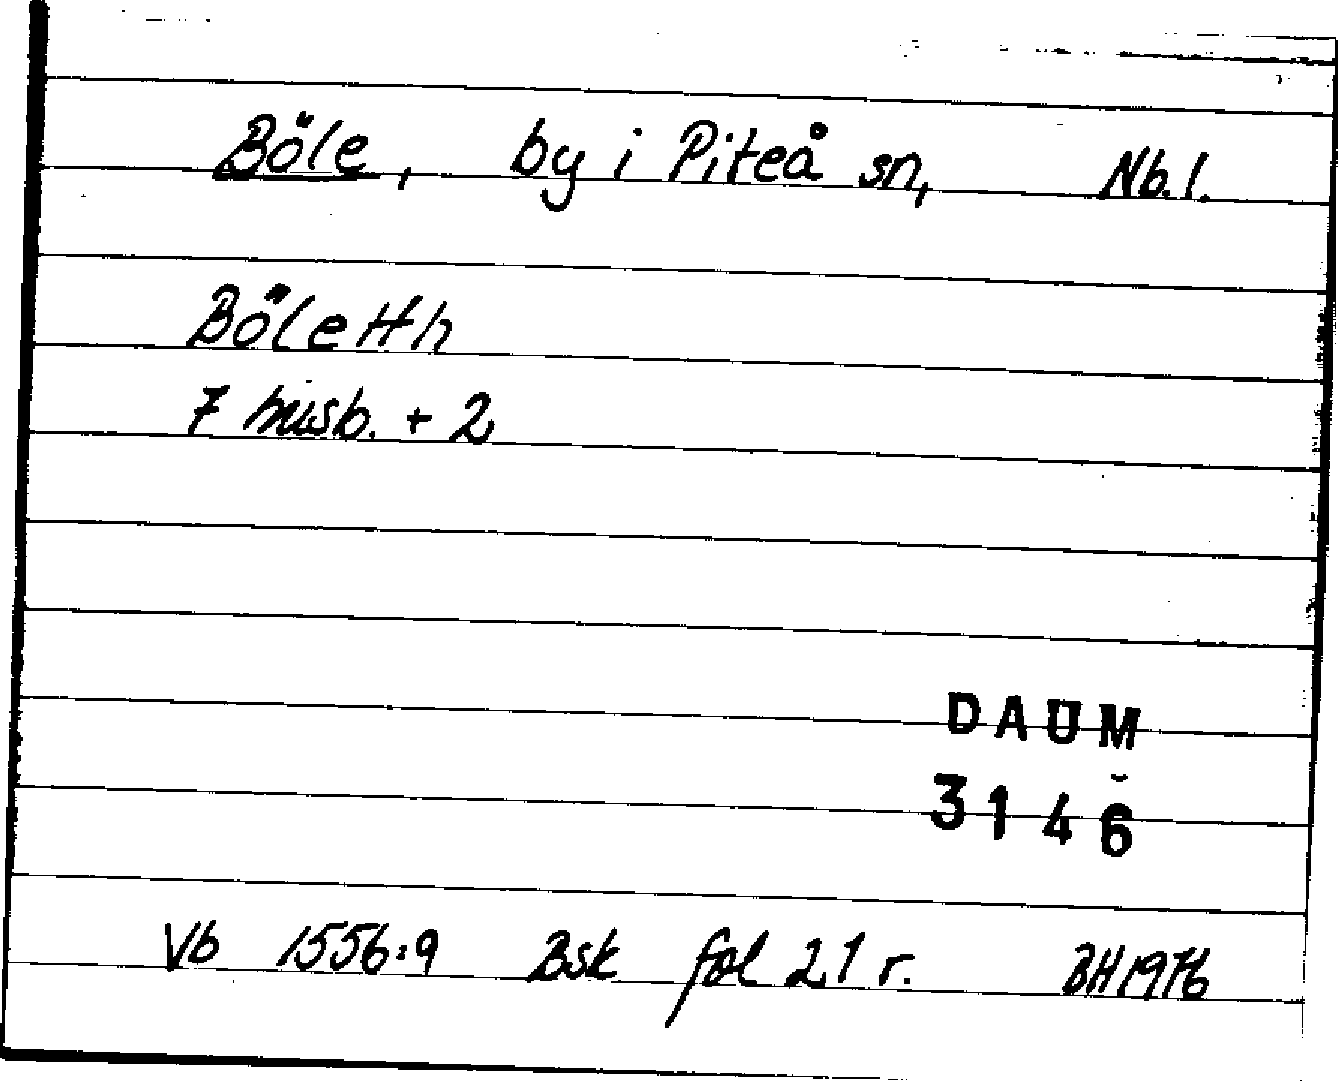 Böle, by i Piteå sn, Nb.l.
Böletth
7 husb. + 2
DAUM
3146
Vb 1556:9 Bsk fol 21 r. BH 1976